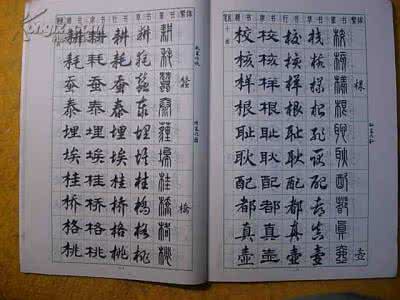 隶书 行书 草书 篆书 繁体
耕 耕 耕 耕 耕
耗 耗 耗 耗 耗
蚕 蚕 蚕 蚕 蚕 蠶
泰 泰 泰 泰 泰
埋 埋 埋 埋 埋
埃 埃 埃 埃 埃
桂 桂 桂 桂 桂
桥 桥 桥 桥 桥 橋
格 格 格 格 格
桃 桃 桃 桃 桃
隶书 行书 草书 篆书 繁体
校 校 校 校 校
核 核 核 核 核
样 样 样 样 样 樣
根 根 根 根 根
耻 耻 耻 耻 耻
耿 耿 耿 耿 耿
配 配 配 配 配
都 都 都 都 都
真 真 真 真 真
壶 壶 壶 壶 壶 壺